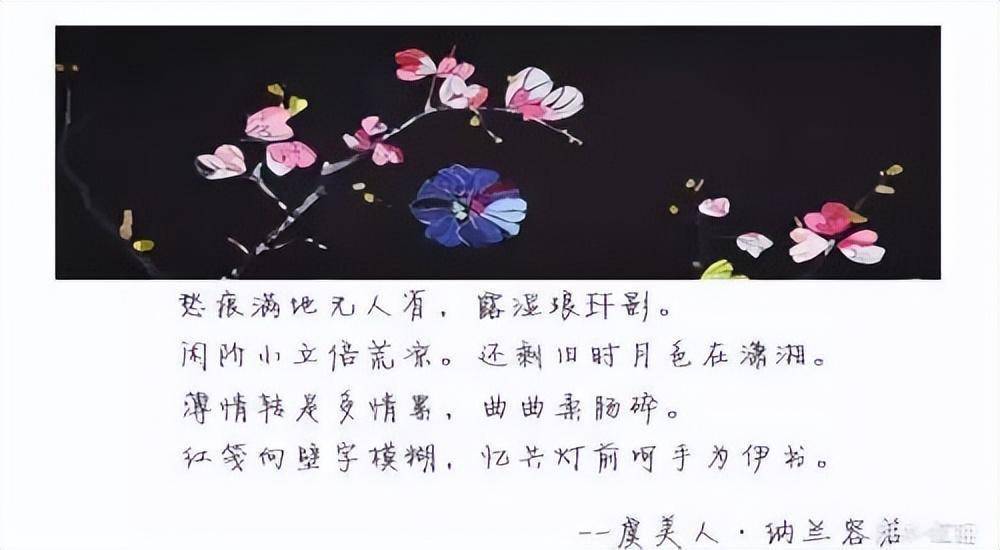 愁痕满地无人省，露湿琅玕影。
闲阶小立倍荒凉。还剩旧时月色在潇湘。
薄情转是多情累，曲曲柔肠碎。
红笺向壁字模糊，忆共灯前呵手为伊书。
--虞美人·纳兰容若